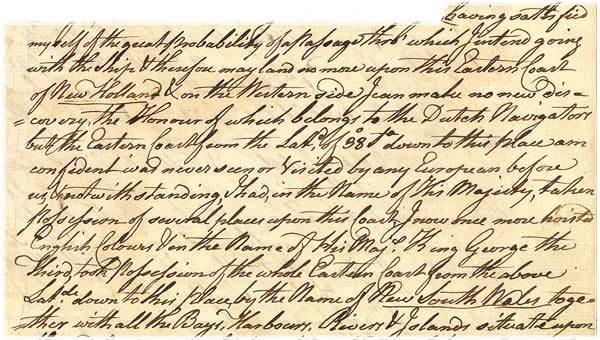 having satisfied
myself of the great Probability of a Passage, thro' which I intend going
with the Ship & therefore may land no more upon this Eastern Coast
of New Holland & on the Western side I can make no new dis=
=covery, the Honour of which belongs to the Dutch Navigators
but the Eastern Coast from the Latd. of 38° S° down to this place I am
confident was never seen or Visited by any European before
us & not with standing, I had, in the Name of His Majesty, taken
Possession of several places upon this Coast, I now once more hoisted
English Colours & in the Name of His Majs. King George the
Third, took Possession of the whole Eastern Coast from the above
Latde. down to this place, by the Name of New South Wales toge=
ther with all the Bays, Harbours, Rivers & Islands situate upon